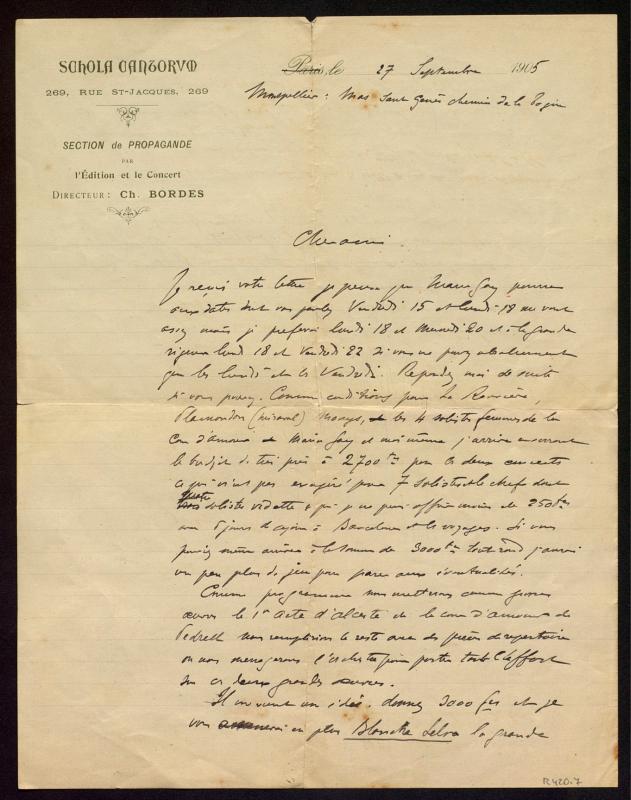 SCHOLA CANTORUM
269, RUE ST-JACQUES, 269
SECTION de PROPAGANDE
PAR
l'Édition et le Concert
DIRECTEUR : Ch. BORDES
Paris, le 27 Septembre 1905
Montpellier : Mas Sant Genès chemin de la
Cher ami
Je reçois votre lettre je pense que Maria Gay pourra
aux dates dont vous parlez Vendredi 15 et lundi 18 me vont
assez mais je préfèrerai lundi 18 et Mercredi 20 et à la grande
rigueur lundi 18 et Vendredi 22 si vous ne pouvez absolument
que les lundis et les Vendredi. Répondez moi de suite
si vous pouvez. Comme conditions pour La Rouvière,
Plamondon (Miraval) et les 4 solistes femmes de la
Cour d'amour et Maria Gay et moi même j'arrive
le budget de très près à 2700 frs pour les deux concerts
ce qui n'est pas exagéré pour 7 solistes et le chef dont
quatre solistes vedettes à qui je ne puis offrir moins de 250 frs
avec 5 jours à Barcelone et les voyages. Si vous
pouviez même arriver à la somme de 3000 frs tout rond j'aurai
un peu plus de jeu pour parer aux éventualités.
Comme programme nous mettrons comme grosses
œuvres le 1er acte d'Alceste et la cour d'amour de
Pedrell nous remplirions le reste avec des pièces de repertoire
où nous menagerons l'orchestre pour porter tout l'effort
sur ces deux grandes œuvres.
Il me vient une idée. donnez 3000 frs et je
vous en plus Blanche Selva la grande
R420.7